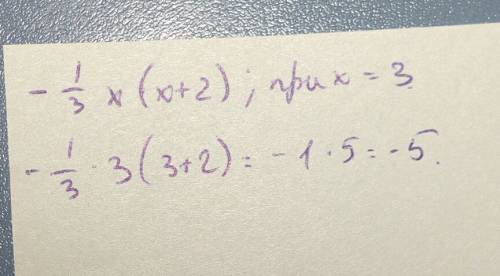 - 1/3 x (x+2); при x = 3.
- 1/3 · 3 (3+2) = -1 · 5 = -5.